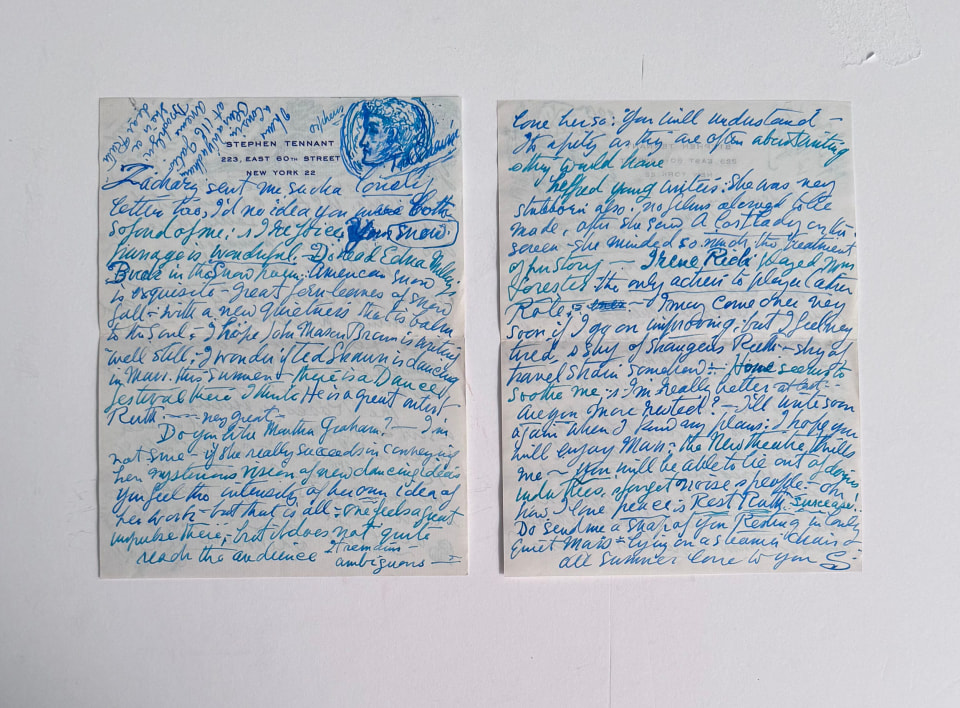 STEPHEN TENNANT
223, EAST 60TH STREET
NEW YORK 22
Zachary sent me such a lovely
letter too, I'd no idea you were both
so fond of me: Your Snow
passage is wonderful. Do read Edna
in the Snow American Snow
is exquisite – great fern-leaves of snow
fall – with a new quietness that is balm
to the Soul – I hope John Mason Brown is
well still – I wonder if Ted Shawn is dancing
in Mass. this Summer – there is a Dance
festival there I think He is a great artist
Ruth – very great –
Do you like Martha Graham? – I'm
not sure – if she really succeeds in conveying
her mysterious vision of new dancing ideas
You feel the intensity of her own idea of
her work – but that is all – one feels a great
impulse there; – but it does not quite
reach the audience It remains
ambiguous –
love her so: You will understand –
It's a pity, as they are often about writing
& they would have
helped young writers: She was very
stubborn also: no films allowed to be
made, after she saw A Lost Lady on the
screen – she minded so much the treatment
of her story – Irene Rich played Mrs
Forrester the only actress to play a Cather
Role: – I may come over very
soon if I go on improving, but I feel very
tired, & shy of strangers Ruth – shy of
travel strain somehow: – Home seems to
soothe me: I'm really better
Are you more rested? – I'll write soon
again when I find my plans: I hope you
will enjoy Mass: the New theatre thrills
me – You will be able to lie out of doors
under trees, & forget noise & people – Oh
how I love peace Rest Ruth
Do send me a snap of you Resting in lovely
Quiet Mass – lying on a steamer Chair
all summer love to you S